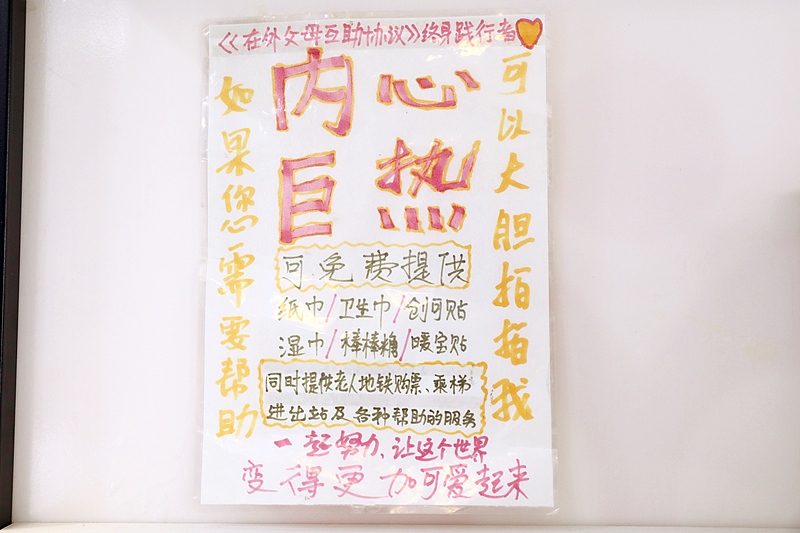 《在外父母互助协议》终身践行者
内心
巨热
如果您需要帮助
可以大胆拍拍我
可免费提供
纸巾/卫生巾/创可贴
湿巾/棒棒糖/暖宝贴
同时提供老人地铁购票、乘梯
进出站及各种帮助的服务
一起努力、让这个世界
变得更加可爱起来